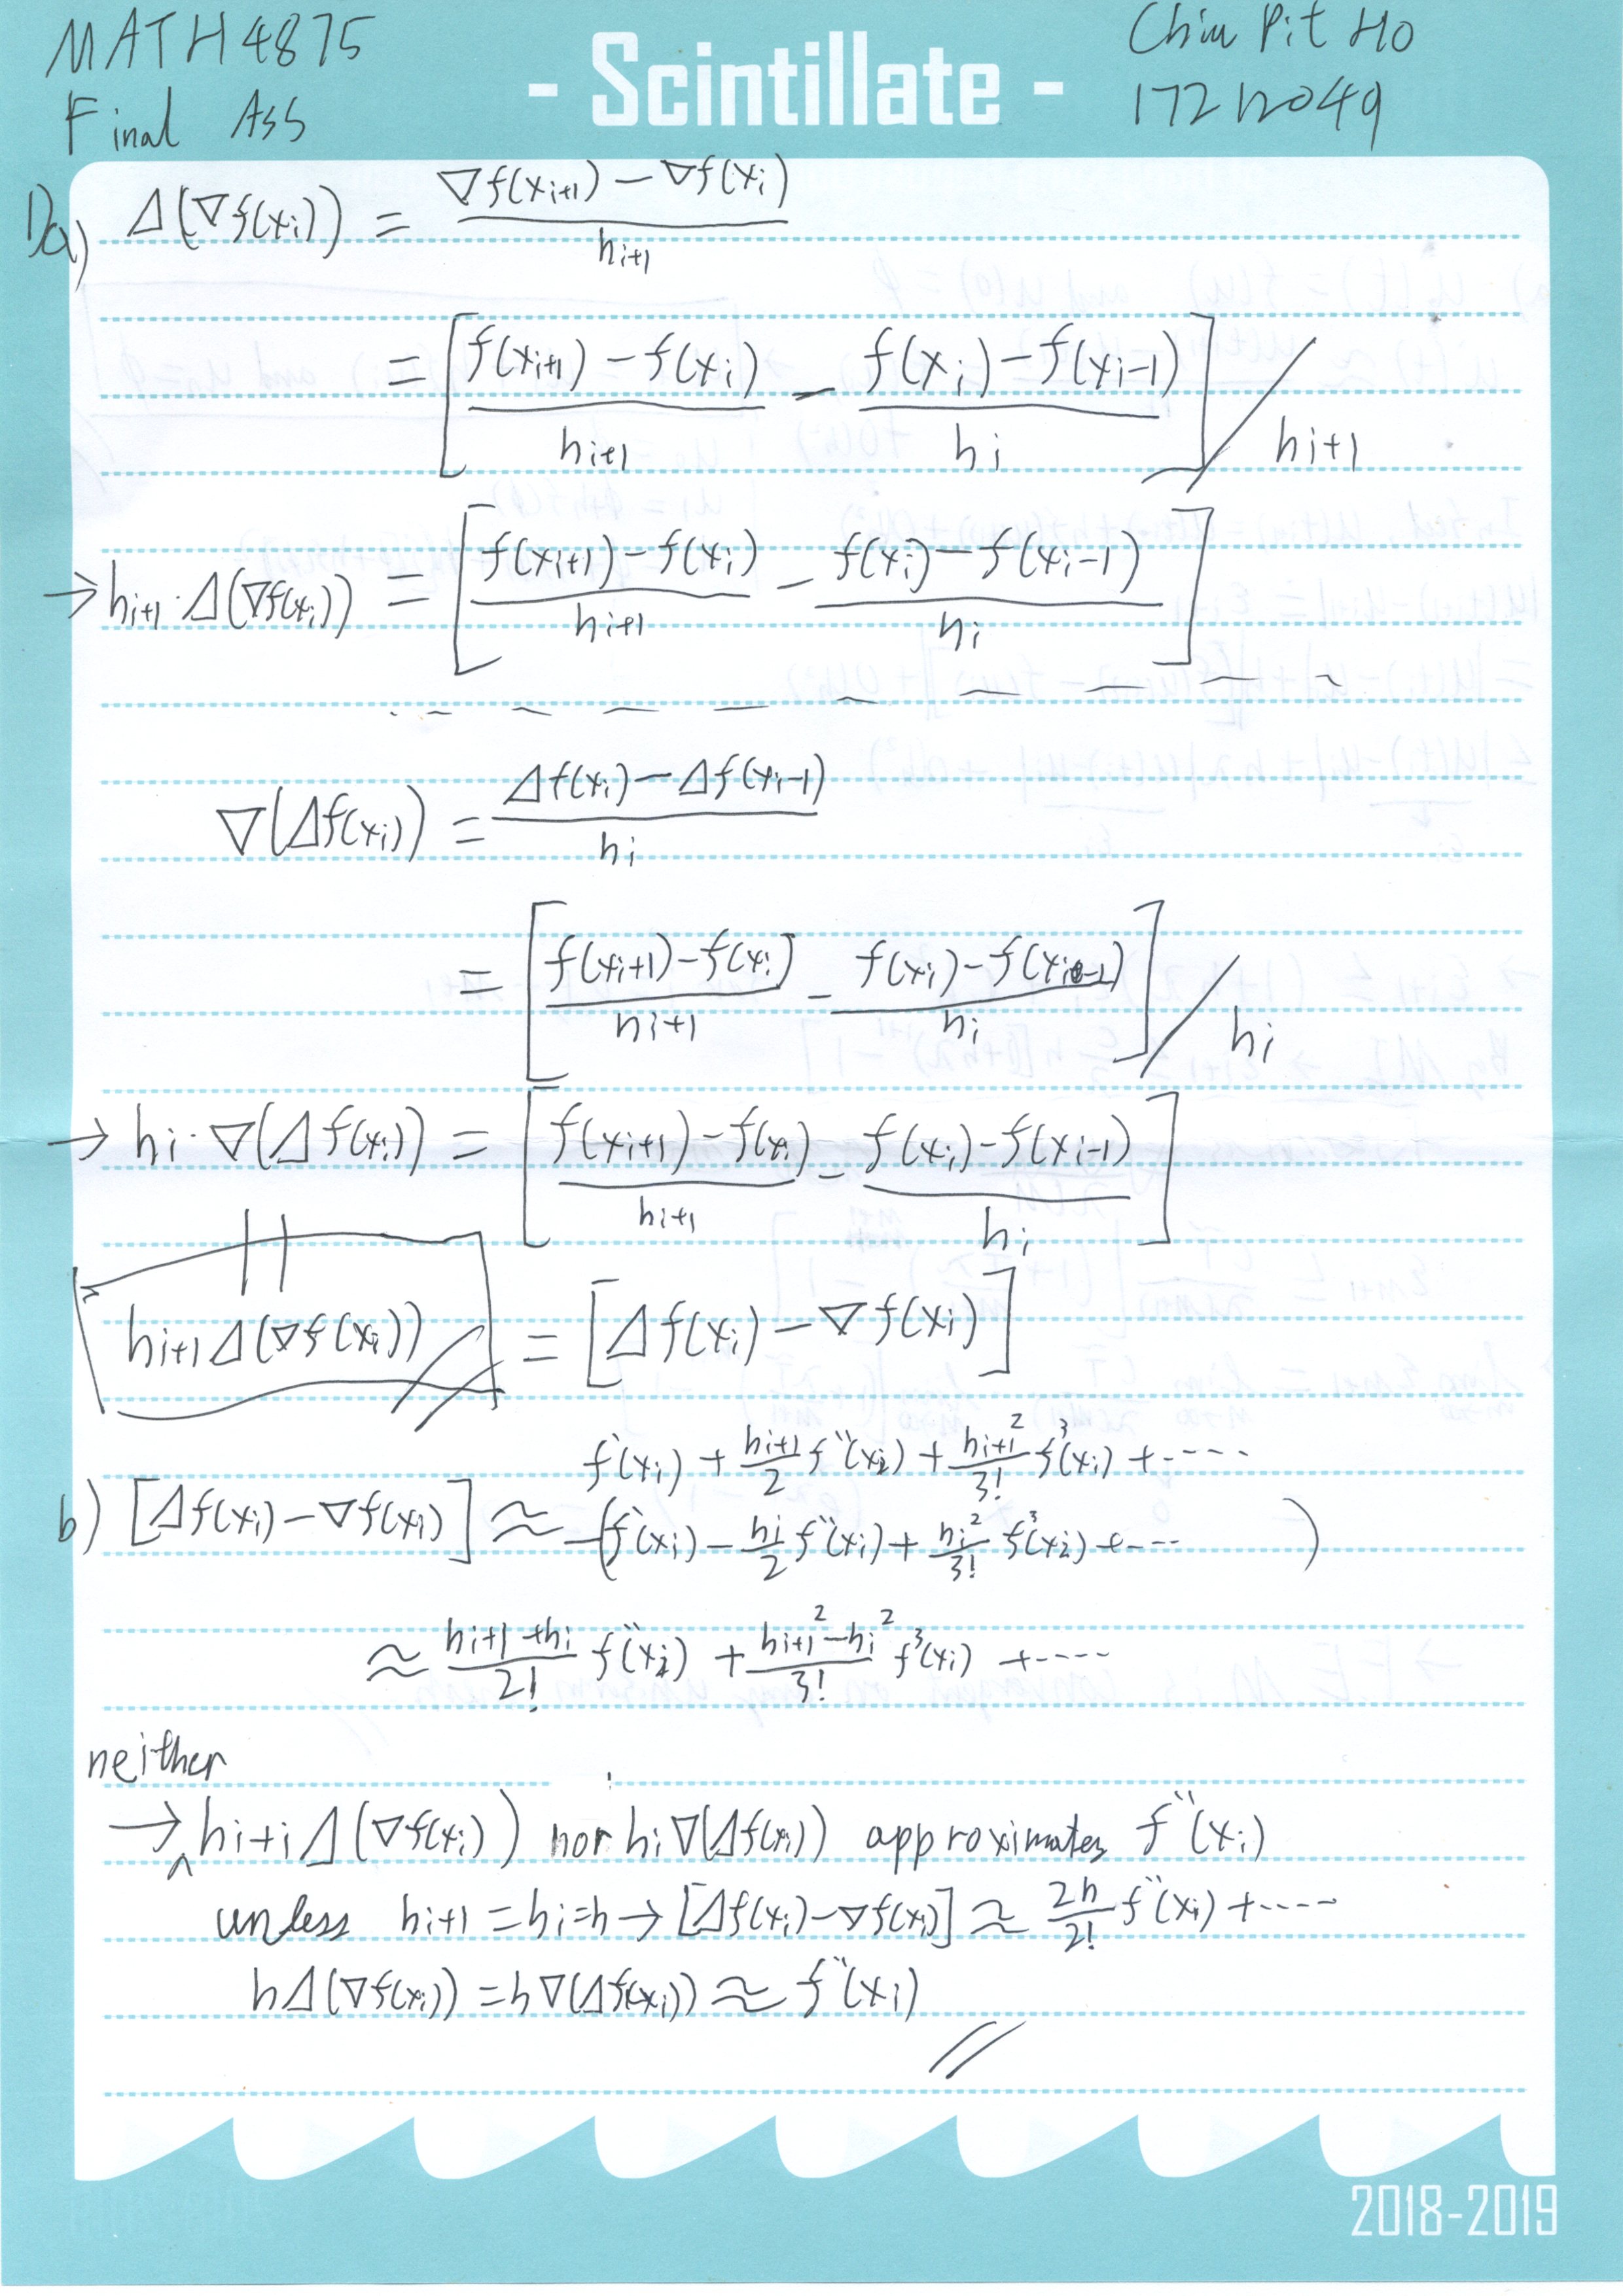 MATH4875
Final Ass
- Scintillate -
Chiu Pit Ho
17212049
1)a) Δ(∇f(xᵢ)) = (∇f(xᵢ₊₁) − ∇f(xᵢ)) / hᵢ₊₁
= [(f(xᵢ₊₁) − f(xᵢ)) / hᵢ₊₁ − (f(xᵢ) − f(xᵢ₋₁)) / hᵢ] / hᵢ₊₁
→ hᵢ₊₁·Δ(∇f(xᵢ)) = [(f(xᵢ₊₁) − f(xᵢ)) / hᵢ₊₁ − (f(xᵢ) − f(xᵢ₋₁)) / hᵢ]
∇(Δf(xᵢ)) = (Δf(xᵢ) − Δf(xᵢ₋₁)) / hᵢ
= [(f(xᵢ₊₁) − f(xᵢ)) / hᵢ₊₁ − (f(xᵢ) − f(xᵢ₋₁)) / hᵢ] / hᵢ
→ hᵢ·∇(Δf(xᵢ)) = [(f(xᵢ₊₁) − f(xᵢ)) / hᵢ₊₁ − (f(xᵢ) − f(xᵢ₋₁)) / hᵢ]
||
hᵢ₊₁Δ(∇f(xᵢ)) = [Δf(xᵢ) − ∇f(xᵢ)]
f`(xᵢ) + hᵢ₊₁/2 f``(xᵢ) + hᵢ₊₁²/3! f³(xᵢ) + ----
b) [Δf(xᵢ) − ∇f(xᵢ)] ≈ −(f`(xᵢ) − hᵢ/2 f``(xᵢ) + hᵢ²/3! f³(xᵢ) + ---- )
≈ (hᵢ₊₁ + hᵢ)/2! f``(xᵢ) + (hᵢ₊₁² − hᵢ²)/3! f³(xᵢ) + ----
neither
→ ^ hi+iΔ(∇f(xᵢ)) nor hᵢ∇(Δf(xᵢ)) approximates f``(xᵢ)
unless hᵢ₊₁ = hᵢ = h → [Δf(xᵢ) − ∇f(xᵢ)] ≈ 2h/2! f``(xᵢ) + ----
hΔ(∇f(xᵢ)) = h∇(Δf(xᵢ)) ≈ f``(xᵢ)
2018-2019